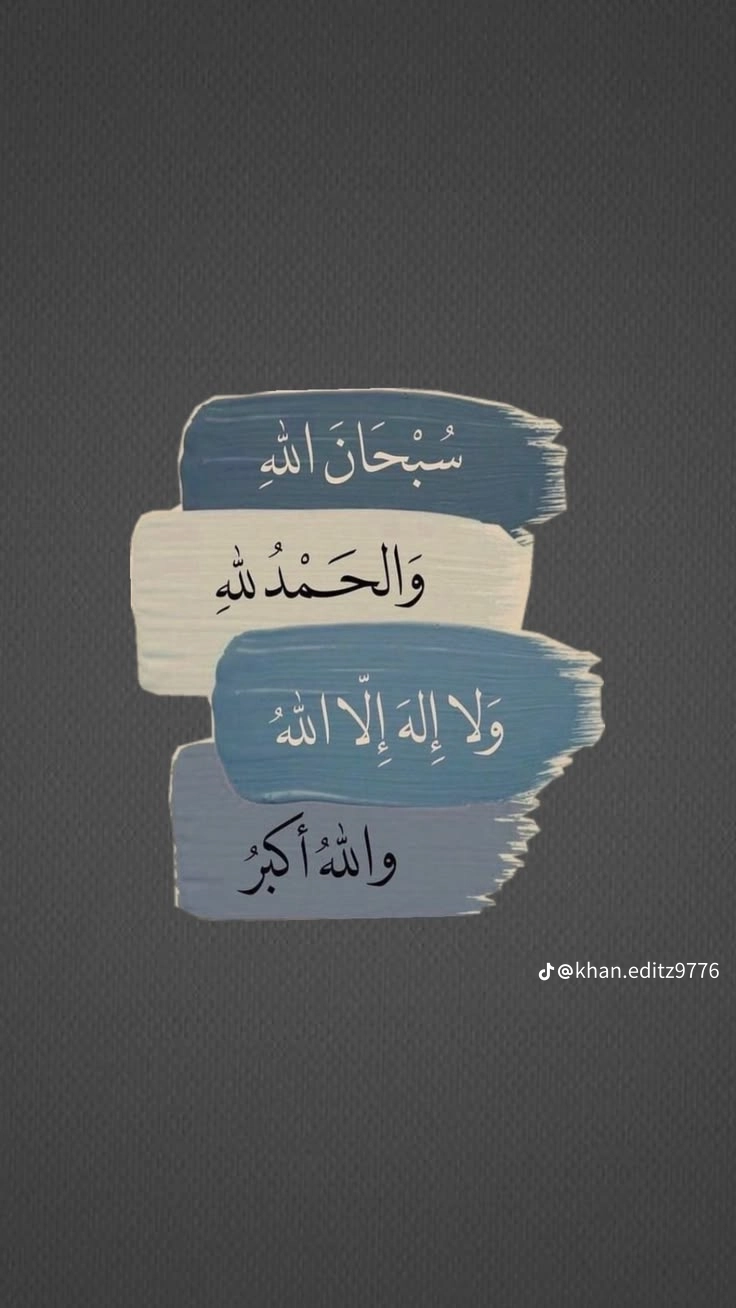 سُبْحَانَ اللهِ
وَالحَمْدُ للهِ
وَلا إِلهَ إِلّا اللهُ
واللهُ أكبرُ
@khan.editz9776